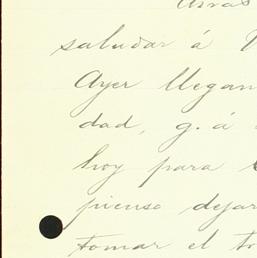 saludar á
Ayer llegan
dad, g. á
hoy para
pienso dejar
tomar el